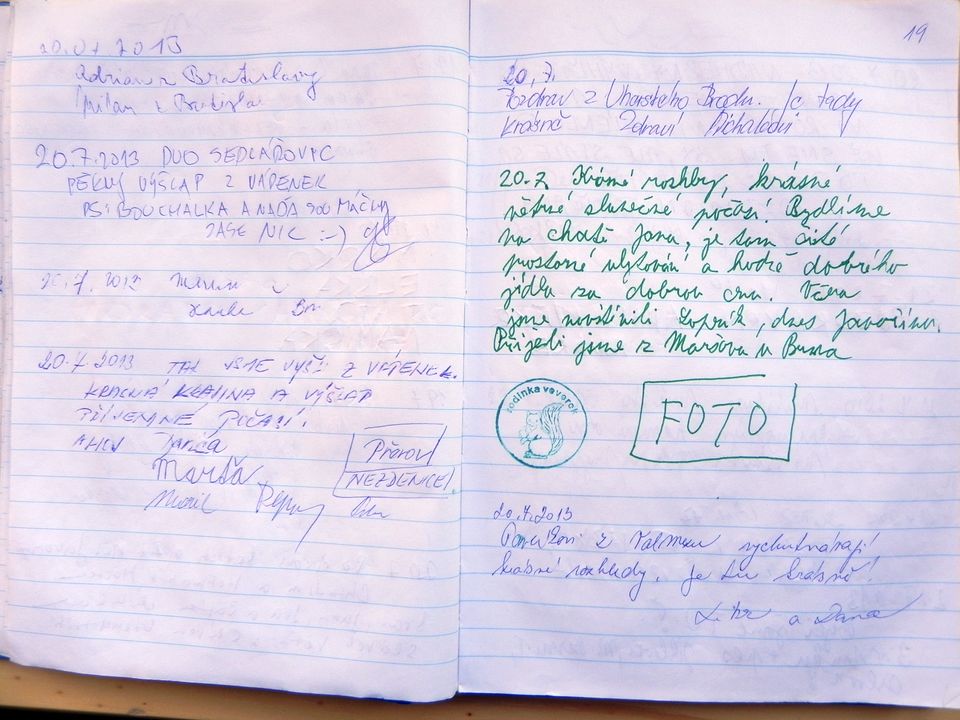 20.07.2013
Adrian z Bratislavy
Milan z
20.7.2013 DUO SEDLÁŘOVIC
PĚKNÝ VÝŠLAP Z VÁPENEK
PSI BOUCHALKA A NAĎA
ZASE NIC :-)
20.7.2013
20.7.2013 TAK JSME VYŠLI Z VÁPENEK.
KRÁSNÁ KRAJINA A VÝŠLAP
PŘÍJEMNÉ POČASÍ.
AHOJ Janča
Marťa
Přerov
NEZDENICE!
19
20.7.
Pozdrav z Uherského Brodu. Je tady
krásně Zdraví
20.7. Krásné rozhledy, krásné
větrné slunečné počasí! Bydlíme
na chatě Jana, je tam čisté
prostorné ubytování a hodně dobrého
jídla za dobrou cenu. Včera
jsme navštívili Lopeník, dnes Javořinu.
Přijeli jsme z Maršova u Brna
rodinka veverek
FOTO
20.7.2013
z vychutnávají
krásné rozhledy. Je tu krásně!
Libor a Dana